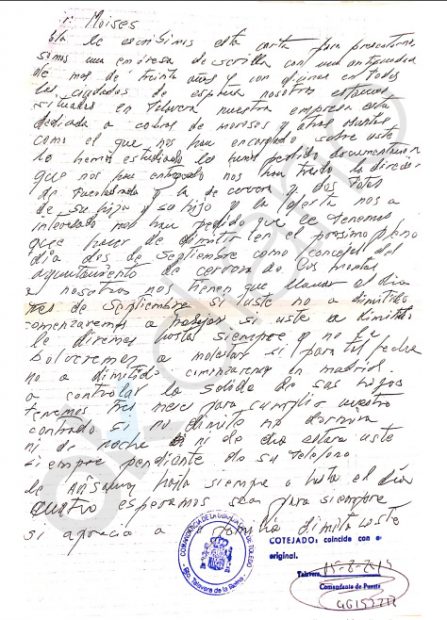 r. Moises
ola le escribimos esta carta para presentarnos
somos una empresa de sevilla con una antiguedad
de mas de treinta años y con oficinas en todas
las ciudades de españa nosotros estamos
situados en Talavera nuestra empresa esta
dedicada a cobros de morosos y otros
como el que nos han encargado sobre uste
lo hemos estudiado les hemos pedido documentacion
que nos han entregado nos han traido la direcion
de Fuenlabrada y la de cervera y dos fotos
de su hija y su hijo y la oferta nos a
interesado nos han pedido que le tenemos
que hacer de dimitir en el prosimo pleno
dia dos de Septiembre como concejal del
ayuntamiento de cervera de los montes
a nosotros nos tienen que llamar el dia
tres de Septiembre si uste no a dimitido
comenzaremos a trabajar si uste a dimitido
le diremos hasta siempre y no le
bolveremos a molestar si para tal fecha
no a dimitido comenzaremos en madrid
a controlar la salida de sus hijos
tenemos tres meses para cumplir nuestro
contrado si no dimite no dormira
ni de noche ni de dia estara uste
siempre pendiente de su telefono
de hasta siempre o hasta el dia
cuatro esperamos sea para siempre
si aprecia a su familia dimita uste
COMANDANCIA DE LA GUARDIA CIVIL DE TOLEDO
Talavera de la Reina
COTEJADO: coincide con e
original.
Talavera 15-8-
Comandante de Puesto
okdiario